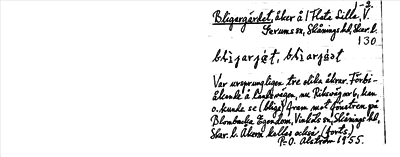 1-2.
Bligargärdet, åker å 1 Flata Lilla, V.
Gerums sn, Skånings hd, Skar. l.
130
bli̇̀garjǽt, bli̇̀arjǽt
Var ursprungligen tre olika åkrar. Förbi-
åkande å landsvägen, nu Riksvägar 6, kan
o. kunde se (bliga) fram mot fönstren på
Blombacka Egendom, Vinköls sn, Skånings hd,
Skar. l. Åkern kallas också (forts.)
P-O. Alström 1955.